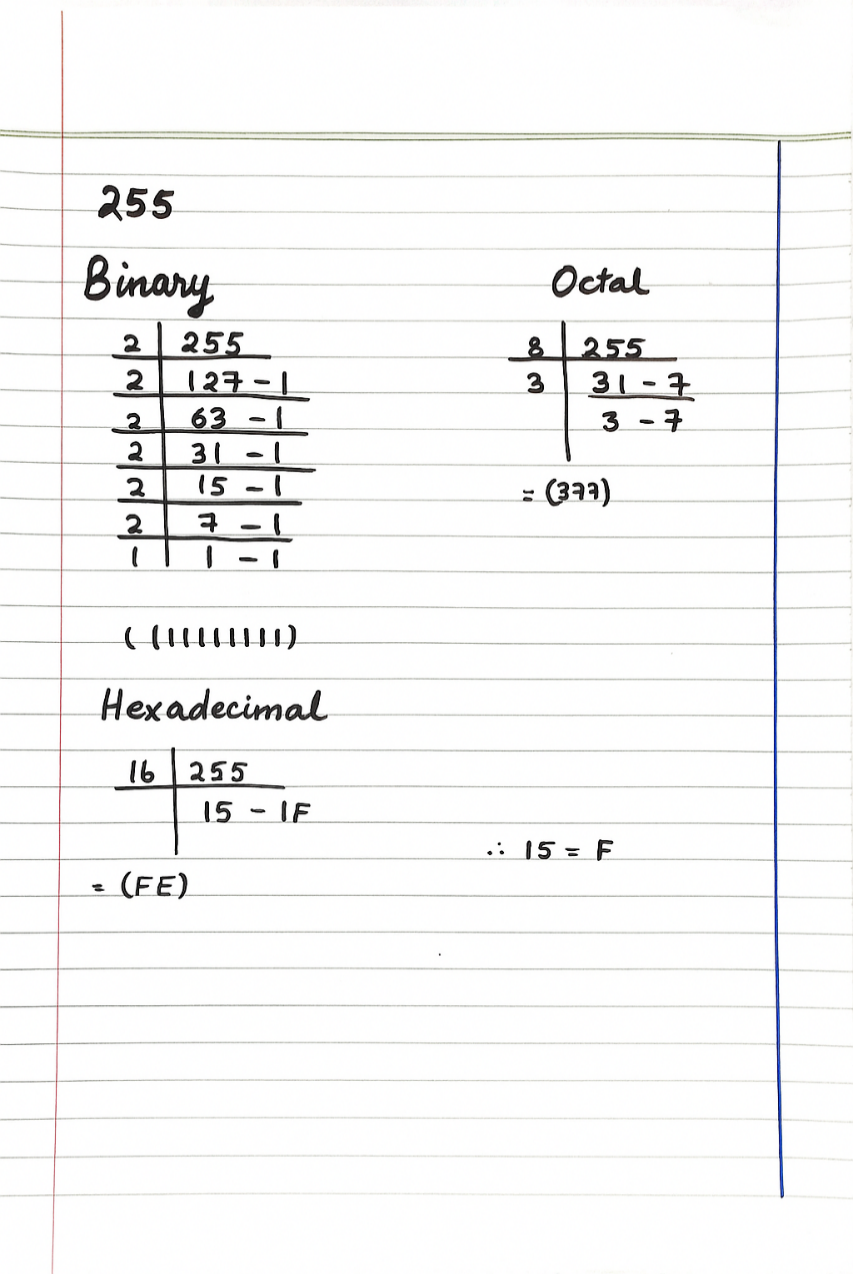 255
Binary
2 255
2 127 - 1
2 63 - 1
2 31 - 1
2 15 - 1
2 7 - 1
1 1 - 1
( (11111111)
Octal
8 255
3 31 - 7
3 - 7
= (377)
Hexadecimal
16 255
15 - 1F
= (FE)
∴ 15 = F